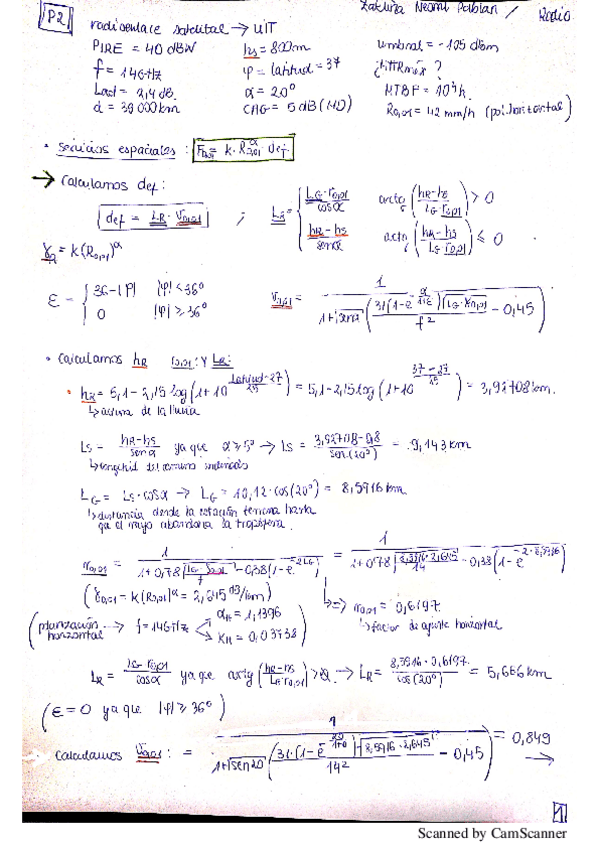 P2 radioenlace satelital → UIT
PIRE = 40 dBW hs = 800m umbral = -105 dBm
f = 14GHz φ = latitud = 37 ¿ ?
Lad = 2,4 dB α = 20° MTBF = 10³h
d = 38 000 km CAG = 5 dB R0,01 = 42 mm/h (pol. horizontal)
• servicios espaciales: F0,01 = k · R0,01^α def
→ calculamos def:
def = LR · V0,01 ; LR = { LG·r0,01 / cosα arctg (hR-hs / LG r0,01) > 0
hR-hs / senα arctg (hR-hs / LG r0,01) ≤ 0
γR = k(R0,01)^α
ε - { 36-|φ| |φ| < 36°
0 |φ| ≥ 36°
V0,01 = 1 / 1+√senα (31(1-e^-α/1+ε) √LG·γR0,01 / f² - 0,45)
• calculamos hR r0,01 y LR:
• hR = 5,1 - 2,15 log (1+10^(latitud-27)/25) = 5,1 - 2,15 log (1+10^(37-27)/25) = 3,92708 km.
↳ altura de la lluvia
Ls - hR-hs / senα ya que α≥5° → Ls = 3,92708-0,8 / sen(20°) = 9,143 km
↳ longitud del camino
LG = Ls·cosα → LG = 10,12·cos(20°) = 8,5916 km
↳ distancia desde la estación terrena hasta
que el rayo abandona la troposfera
r0,01 = 1 / 1+0,78 √LG·γ0,01 / f - 0,38(1-e^-2LG) = 1 / 1+0,78 √8,5916·2,645 / 14 - 0,38(1-e^-2·8,5916)
(γ0,01 = k(R0,01)^α = 2,645 dB/km)
(polarización horizontal → f=14GHz αH = 1,1396 kH = 0,03738)
⇒ r0,01 = 0,6197
↳ factor de ajuste horizontal
LR = LG·r0,01 / cosα ya que arctg (hR-hs / LG r0,01) > 0 → LR = 8,5916·0,6197 / cos(20°) = 5,666 km
(ε = 0 ya que |φ| ≥ 36°)
calculamos V0,01: = 1 / 1+√sen20 (31·(1-e^-20/1+0) √8,5916·2,645 / 14² - 0,45) = 0,849
→
1
Scanned by CamScanner